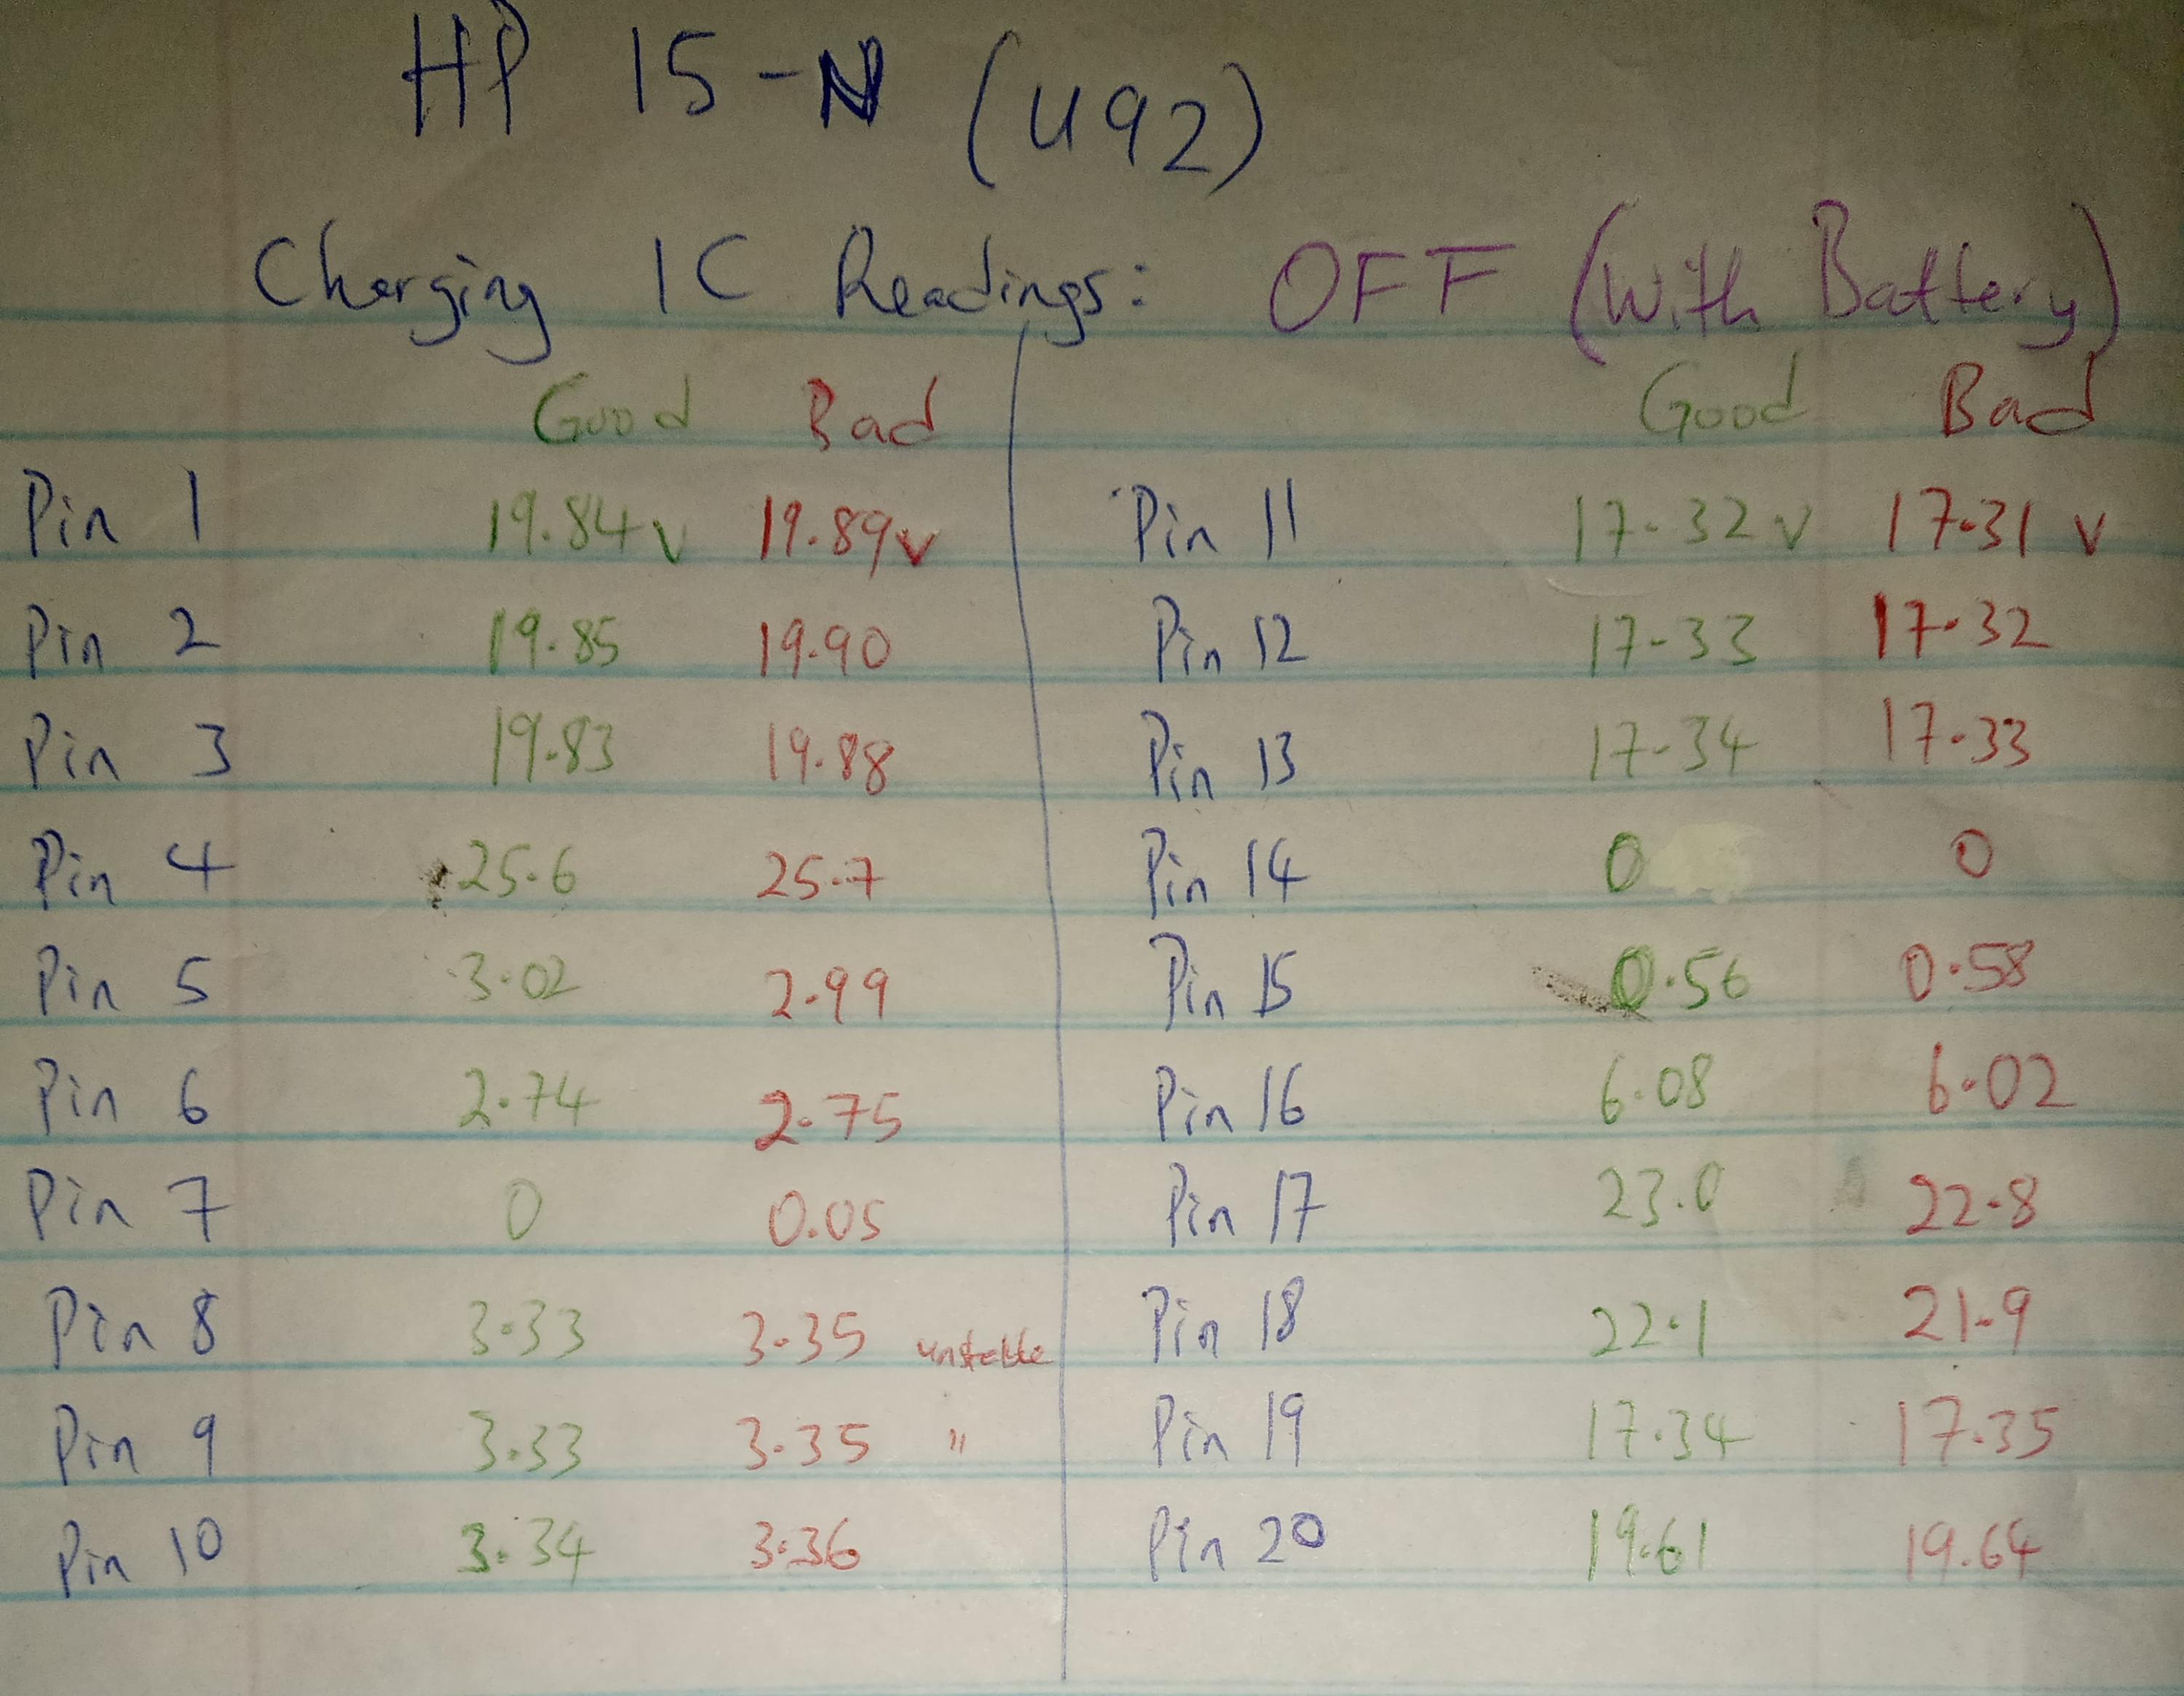 HP 15-N (U92)
Charging IC Readings: OFF (With Battery)
Good Bad Good Bad
Pin 1 19.84v 19.89v Pin 11 17.32v 17.31 v
Pin 2 19.85 19.90 Pin 12 17.33 17.32
Pin 3 19.83 19.88 Pin 13 17.34 17.33
Pin 4 25.6 25.7 Pin 14 0 0
Pin 5 3.02 2.99 Pin 15 0.56 0.58
Pin 6 2.74 2.75 Pin 16 6.08 6.02
Pin 7 0 0.05 Pin 17 23.0 22.8
Pin 8 3.33 3.35 unstable Pin 18 22.1 21.9
Pin 9 3.33 3.35 " Pin 19 17.34 17.35
Pin 10 3.34 3.36 Pin 20 19.61 19.64